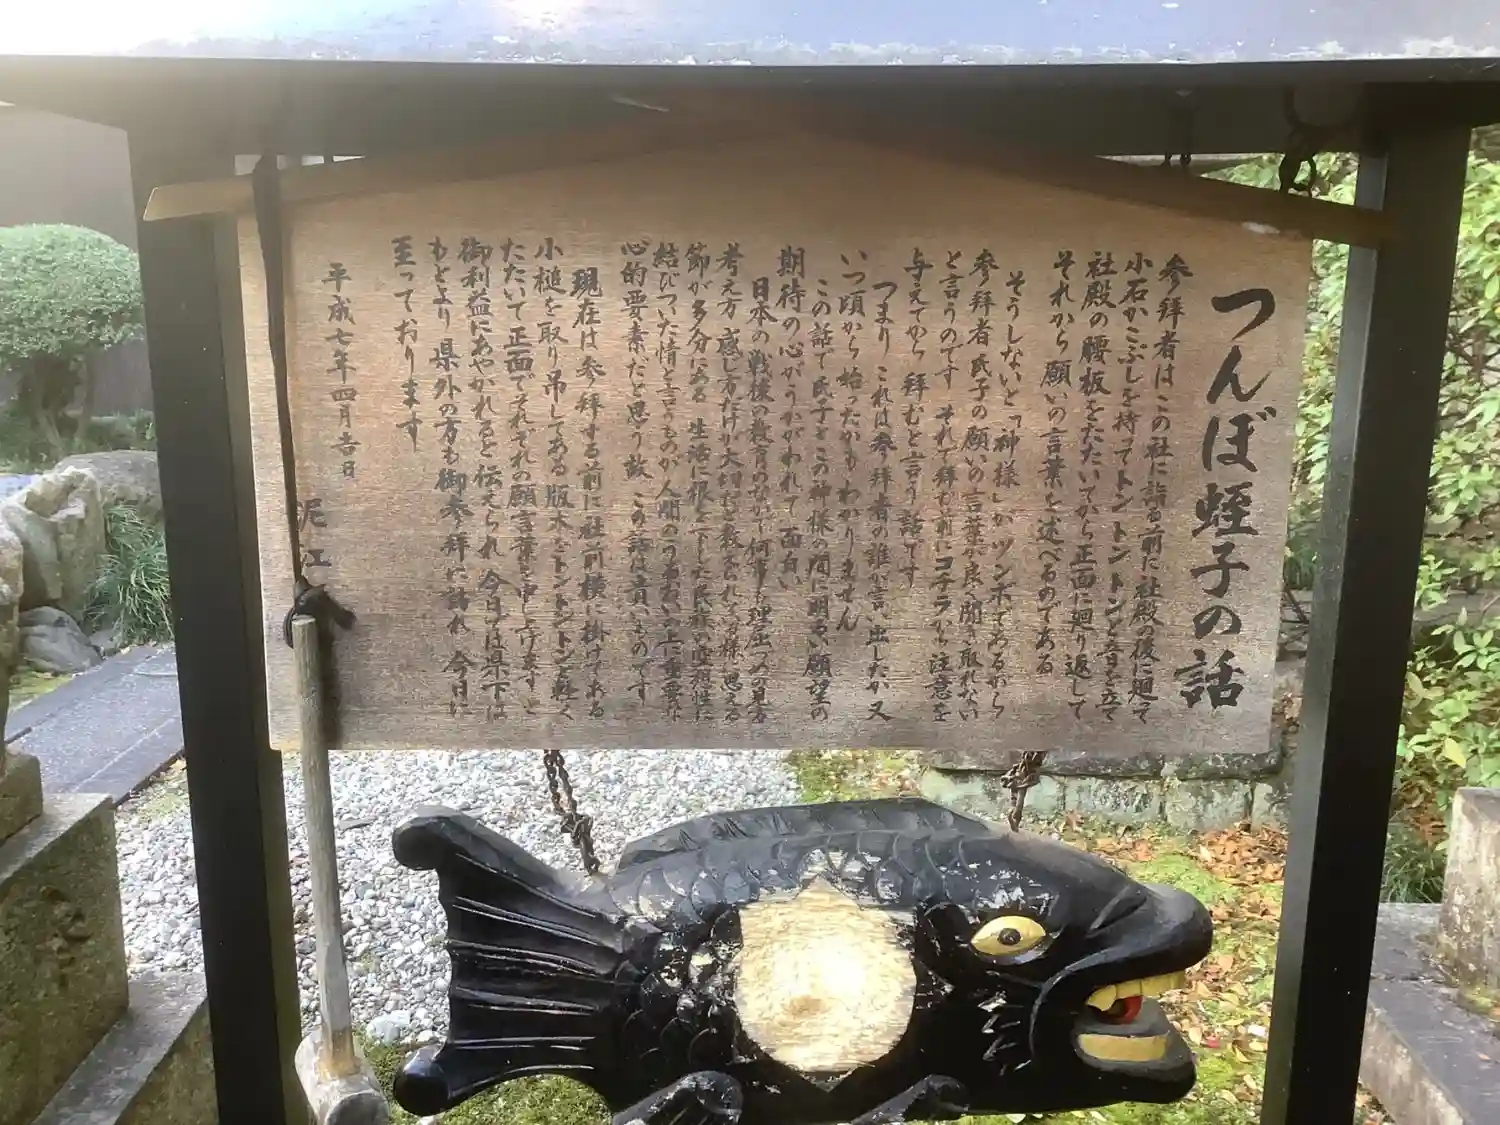 つんぼ蛭子の話
参拝者はこの社に詣る前に社殿の後に廻って
小石かこぶしを持ってトントントンと音を立て
社殿の腰板をたたいてから正面に廻り返して
それから願いの言葉を述べるのである
そうしないと「神様」がツンボであるから
参拝者氏子の願いの言葉が良く聞き取れない
と言うのです それで拝む前にコチラから注意を
与えてから拝むと言う話です
つまり これは参拝者の誰が言い出したか又
いつ頃から始ったかもわかりません
この話で氏子とこの神様の間に明るい願望の
期待の心がうかがわれて 面白い
日本の戦後の教育のなかで何事も理屈への見方
考え方 感じ方だけが大切だと教えられている様に思える
節が多分にある 生活に根を下した民様の空想性に
結びついた情と言うものが人間のうるおいの上に重要な
心的要素だと思う故 この話は貴いものです
現在は参拝する前に社前横に掛けてある
小槌を取り吊してある版木をトントントンと軽く
たたいて正面でそれぞれの願言葉を申し上げますと
御利益にあやかれると伝えられ 今日では県下は
もとより県外の方も御参拝に訪れ 今日に
至っております
平成七年四月吉日
泥江